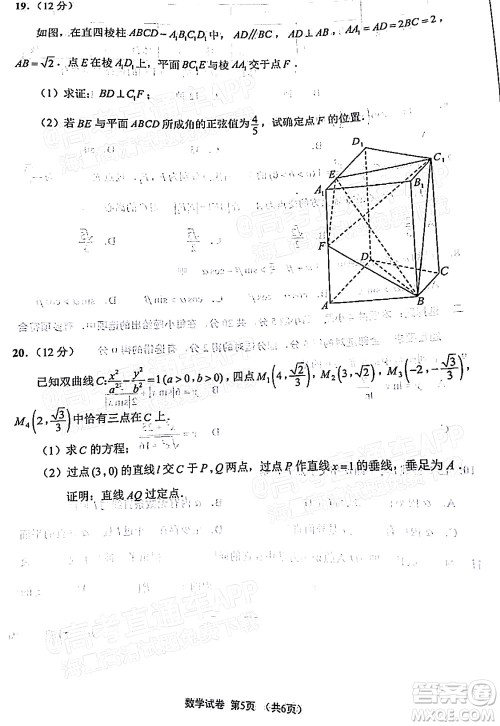 19.（12 分）
如图，在直四棱柱 ABCD－A₁B₁C₁D₁ 中，AD∥BC，AD⊥AB，AA₁=AD=2BC=2，
AB=√2．点 E 在棱 A₁D₁ 上，平面 EBC₁ 与棱 AA₁ 交于点 F．
（1）求证：BD⊥C₁F；
（2）若 BE 与平面 ABCD 所成角的正弦值为 4/5，试确定点 F 的位置．
D₁
C₁
E
A₁
B₁
F
D
C
A
B
20.（12 分）
已知双曲线 C: x²/a² - y²/b² =1(a>0,b>0)，四点 M₁(4, √2/3)，M₂(3, √2)，M₃(-2, -√3/3)，
M₄(2, √3/3) 中恰有三点在 C 上．
（1）求 C 的方程；
（2）过点 (3,0) 的直线 l 交 C 于 P，Q 两点，过点 P 作直线 x=1 的垂线，垂足为 A．
证明：直线 AQ 过定点．
数学试卷 第5页 （共6页）